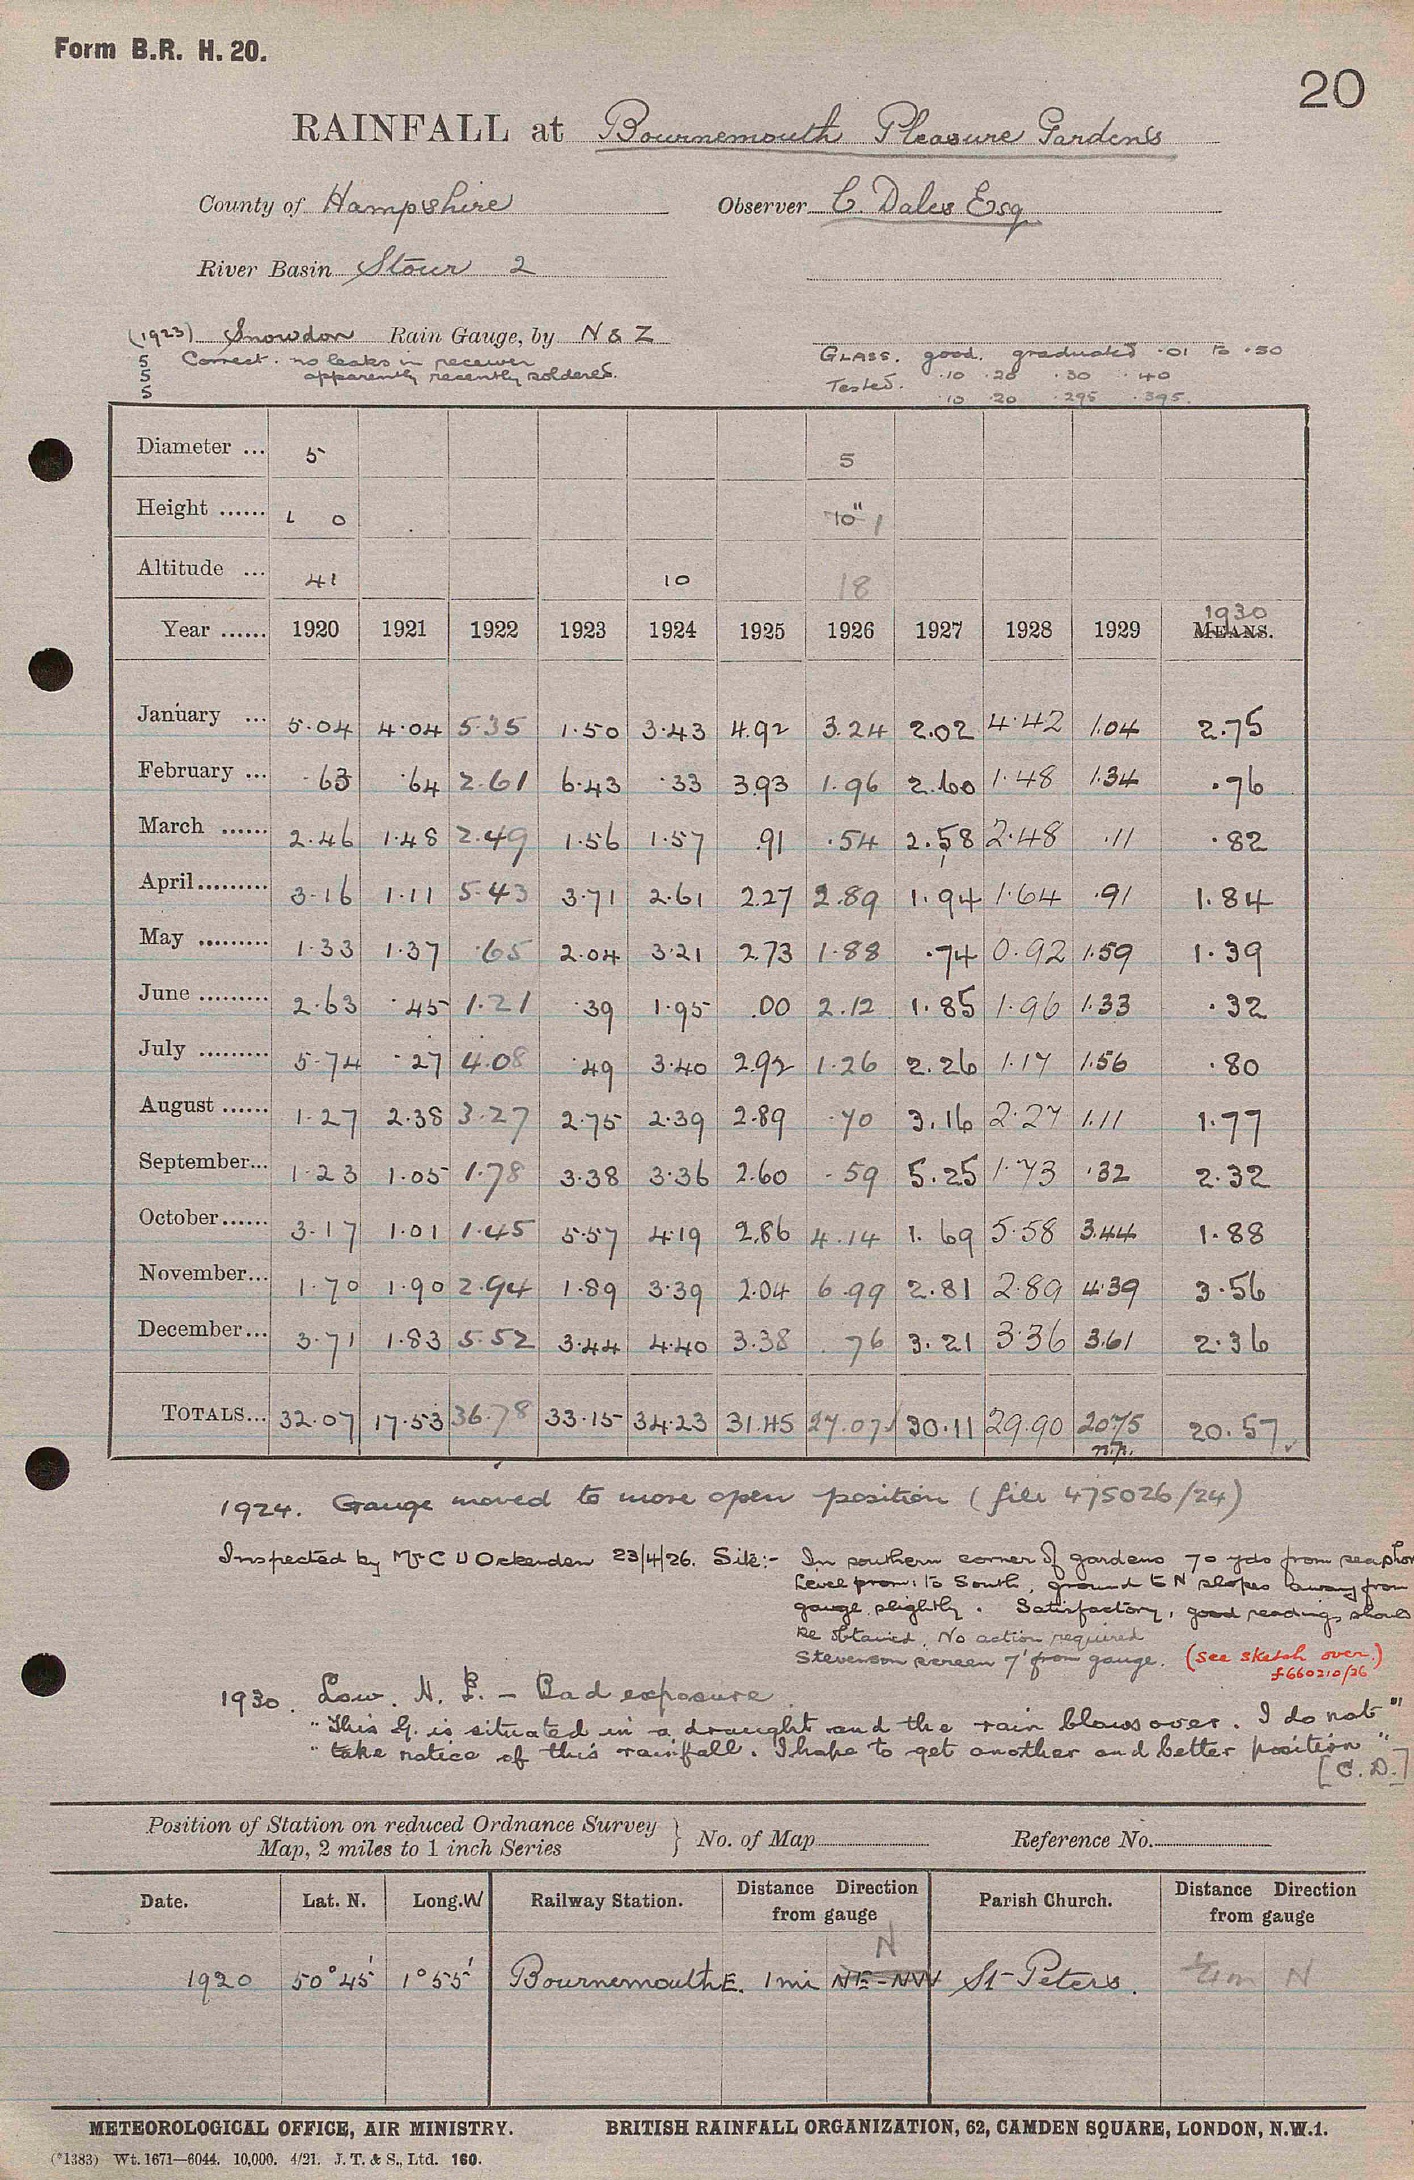 Form B.R. H. 20.
20
RAINFALL at Bournemouth Pleasure Gardens
County of Hampshire Observer C. Dales Esq
River Basin Stour 2
(1923) Snowdon Rain Gauge, by N & Z
5 Correct. no leaks in receiver
5 apparently recently soldered.
5
GLASS. good. graduated .01 to .50
Tested. .10 .20 .30 .40
.10 .20 .295 .395.
Diameter ... 5 5
Height ...... 1 0 10" 1
Altitude ... 41 10 18
1930
Year ...... 1920 1921 1922 1923 1924 1925 1926 1927 1928 1929 MEANS.
January ... 5.04 4.04 5.35 1.50 3.43 4.92 3.24 2.02 4.42 1.04 2.75
February ... .63 .64 2.61 6.43 .33 3.93 1.96 2.60 1.48 1.34 .76
March ...... 2.46 1.48 2.49 1.56 1.57 .91 .54 2.58 2.48 .11 .82
April ......... 3.16 1.11 5.43 3.71 2.61 2.27 2.89 1.94 1.64 .91 1.84
May ......... 1.33 1.37 .65 2.04 3.21 2.73 1.88 .74 0.92 1.59 1.39
June ......... 2.63 .45 1.21 .39 1.95 .00 2.12 1.85 1.96 1.33 .32
July ......... 5.74 .27 4.08 .49 3.40 2.92 1.26 2.26 1.17 1.56 .80
August ...... 1.27 2.38 3.27 2.75 2.39 2.89 .70 3.16 2.27 1.11 1.77
September... 1.23 1.05 1.78 3.38 3.36 2.60 .59 5.25 1.73 .32 2.32
October...... 3.17 1.01 1.45 5.57 4.19 2.86 4.14 1.69 5.58 3.44 1.88
November... 1.70 1.90 2.94 1.89 3.39 2.04 6.99 2.81 2.89 4.39 3.56
December... 3.71 1.83 5.52 3.44 4.40 3.38 .76 3.21 3.36 3.61 2.36
TOTALS... 32.07 17.53 36.78 33.15 34.23 31.45 27.07 30.11 29.90 20.75 20.57
n.p.
1924. Gauge moved to more open position (file 475026/24)
Inspected by Mr C U Ockenden 23/4/26. Site:- In southern corner of gardens 70 yds from seashor
Level prom: to South, ground to N slopes away from
gauge slightly. Satisfactory, good readings should
be obtained. No action required
Stevenson screen 7' from gauge. (see sketch over.)
f660210/26
1930. Low. N. P. - Bad exposure.
"This G. is situated in a draught and the rain blows over. I do not"
"take notice of this rainfall. I hope to get another and better position"
[C. D.]
Position of Station on reduced Ordnance Survey
Map, 2 miles to 1 inch Series } No. of Map Reference No.
Date. Lat. N. Long. W Railway Station. Distance Direction from gauge Parish Church. Distance Direction from gauge
N
1920 50° 45' 1° 55' Bournemouth E. 1 mi NE-NW St Peters. ¼ m N
METEOROLOGICAL OFFICE, AIR MINISTRY. BRITISH RAINFALL ORGANIZATION, 62, CAMDEN SQUARE, LONDON, N.W.1.
(*1383) Wt. 1671—6044. 10,000. 4/21. J. T. & S., Ltd. 160.